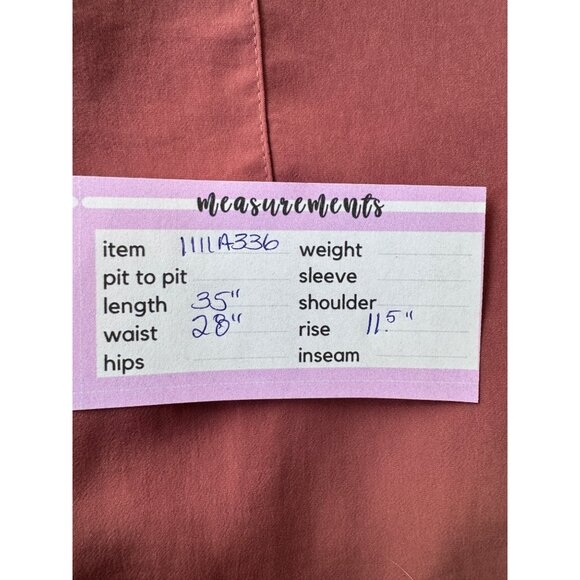 measurements
item 1111A336 weight
pit to pit sleeve
length 35" shoulder
waist 28" rise 11.5"
hips inseam